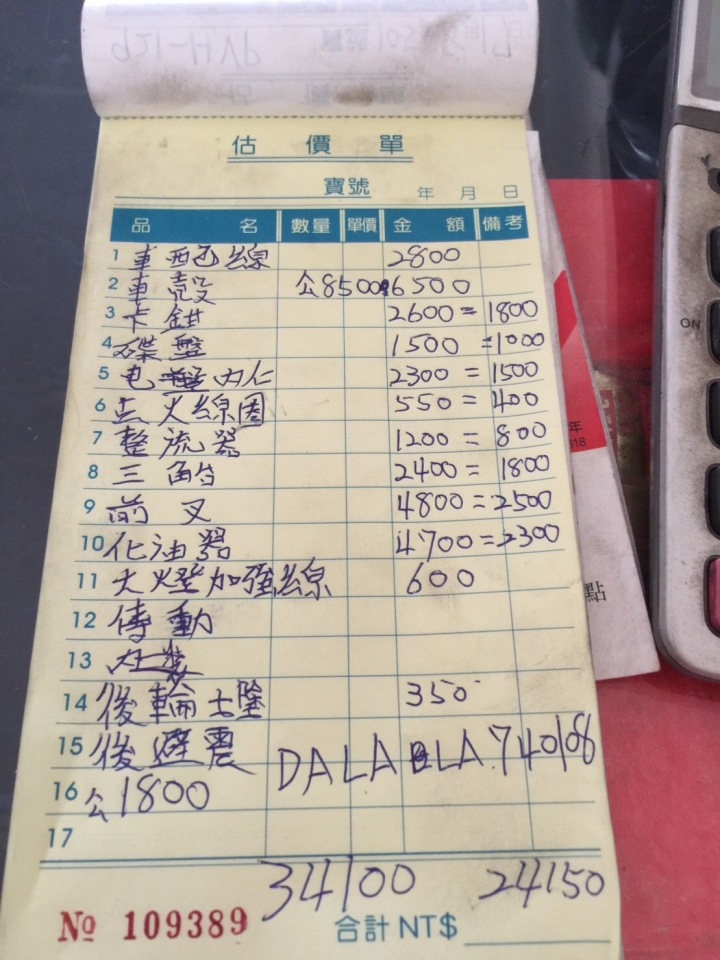 PVH-129
估價單
寶號 年 月 日
品名 數量 單價 金額 備考
1 車 線 2800
2 車殼 公8500 6500
3 卡鉗 2600=1800
4 碟盤 1500=1000
5 电盤内仁 2300=1500
6 点火線圈 550=400
7 整流器 1200=800
8 三 2400=1800
9 前叉 4800=2500
10 化油器 4700=2300
11 大燈加強線 600
12 傳動
13
14 後輪土除 350
15 後避震 DALA BLA.740108
16 公1800
17
34100 24150
№ 109389 合計 NT$
ON
年
318
點